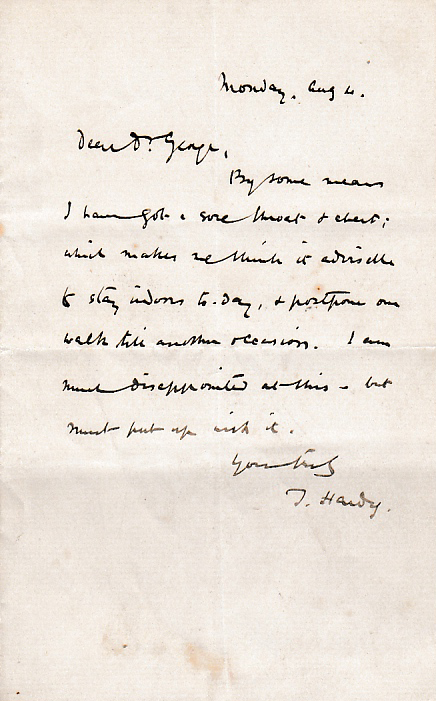 Monday, Aug 4.
Dear Dr. George,
By some means
I have got a sore throat & chest;
which makes me think it advisable
to stay indoors to-day, & postpone our
walk till another occasion. I am
much disappointed at this - but
must put up with it.
Yours truly
T. Hardy.